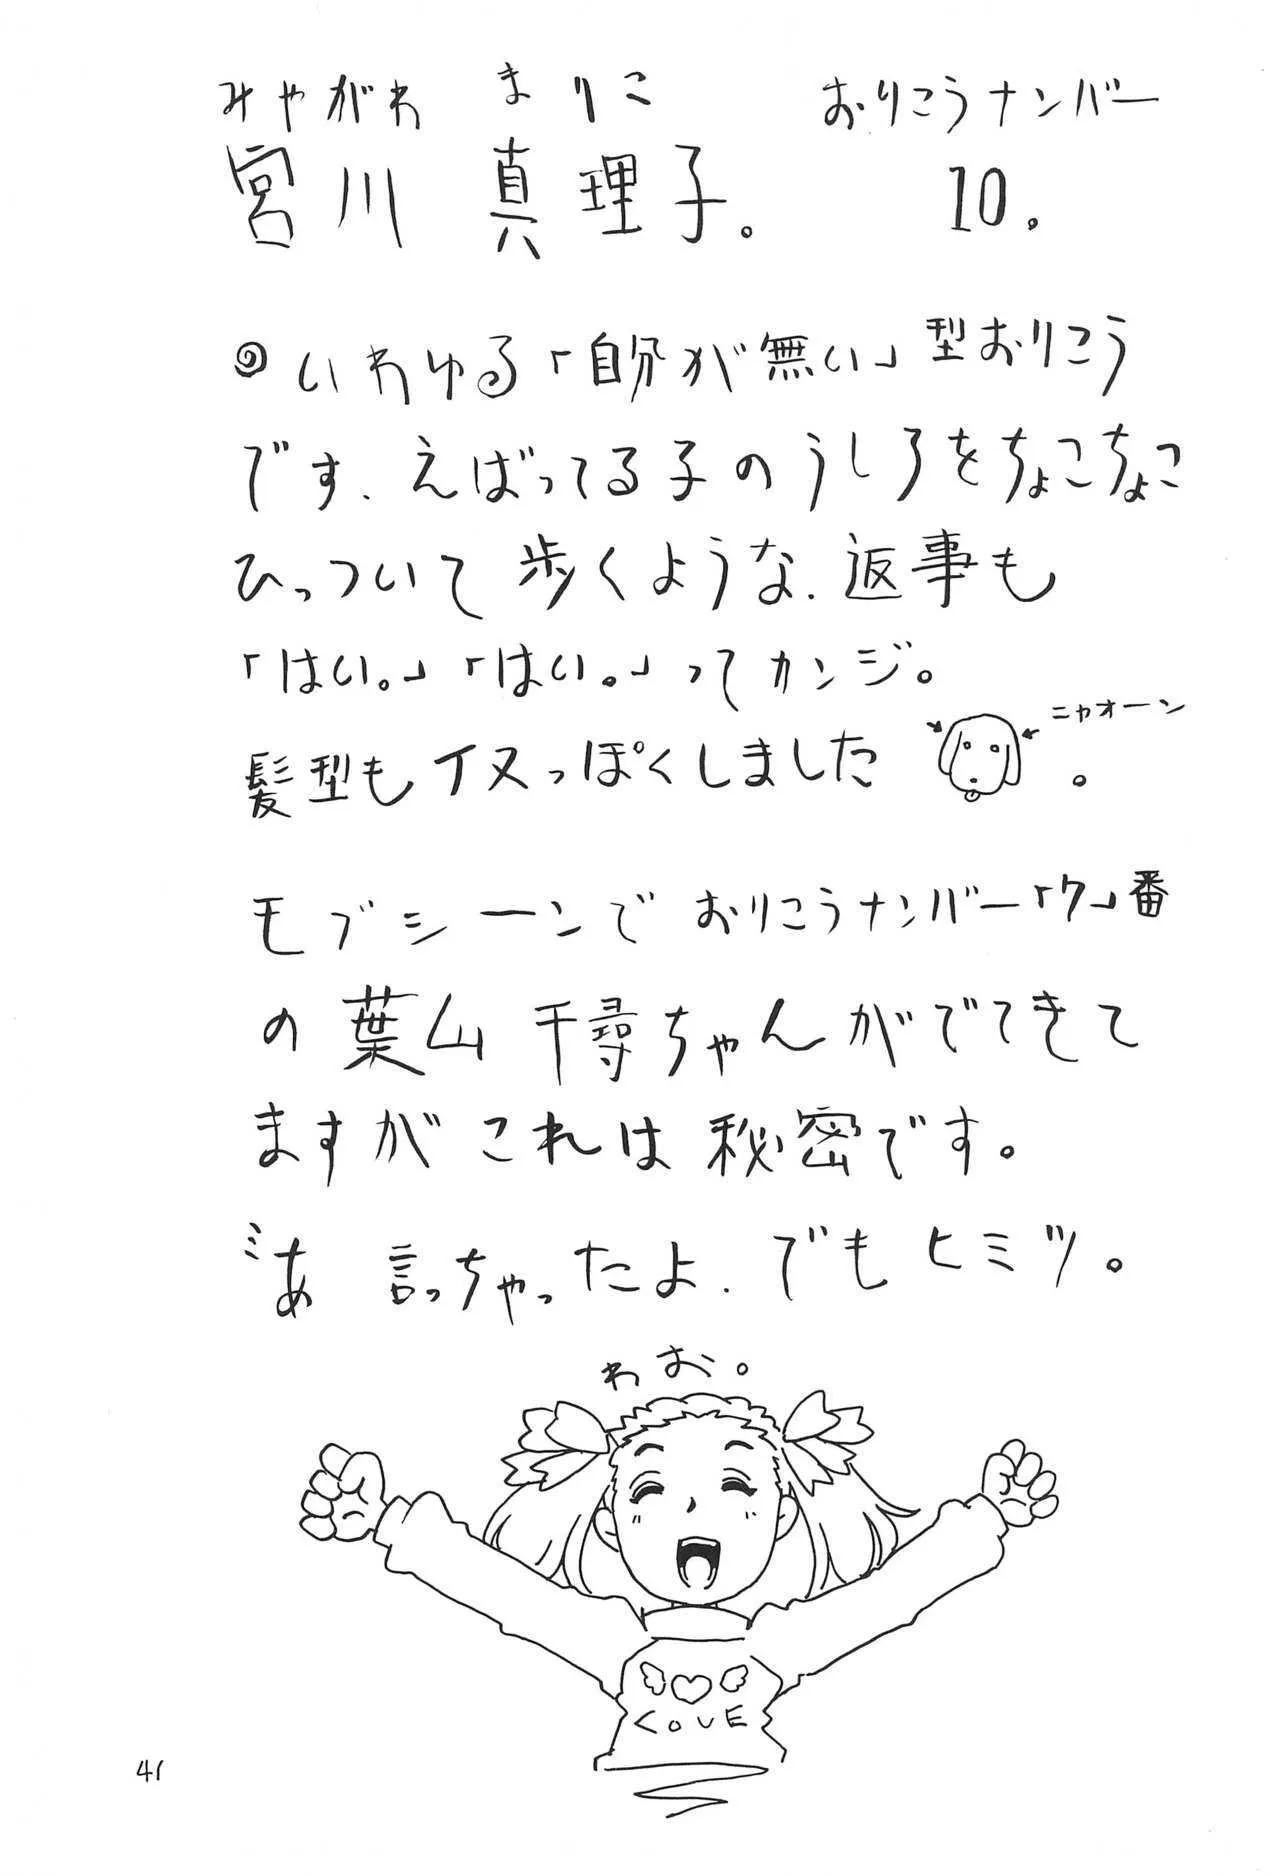 みやがわ まりこ おりこうナンバー
宮川 真理子。 10.
いわゆる「自分が無い」型おりこう
です、えばってる子のうしろをちょこちょこ
ひっついて歩くような、返事も
「はい。」「はい。」ってカンジ。
ニャオーン
髪型もイヌっぽくしました。
モブシーンでおりこうナンバー「7」番
の葉山 千尋ちゃんがでてきて
ますがこれは秘密です。
あ 言っちゃったよ、でもヒミツ。
わお。
LOVE
41